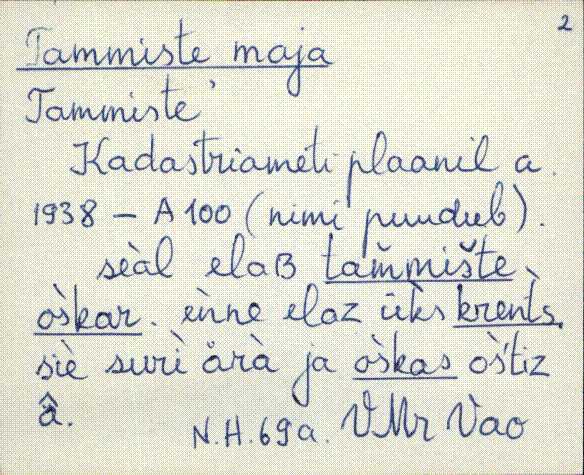 2
Tammiste maja
Tammiste'
Kadastriameti plaanil a.
1938 – A 100 (nimi puudub).
sèal elaB tam̆mište
òškar. ènne elaz ükš krents̀.
siè surì ärà ja òškas òštiz
â.
N.H. 69a. VMr Vao